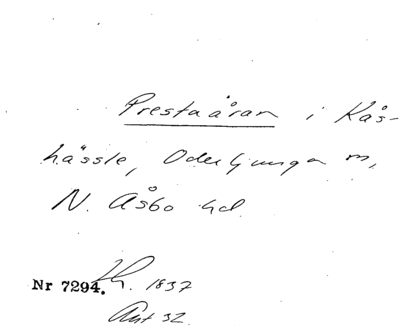 Prestaåran i Kås-
hässle, Oderljunga m,
N. Åsbo hd
Nr 7294. 1837
Ant 32